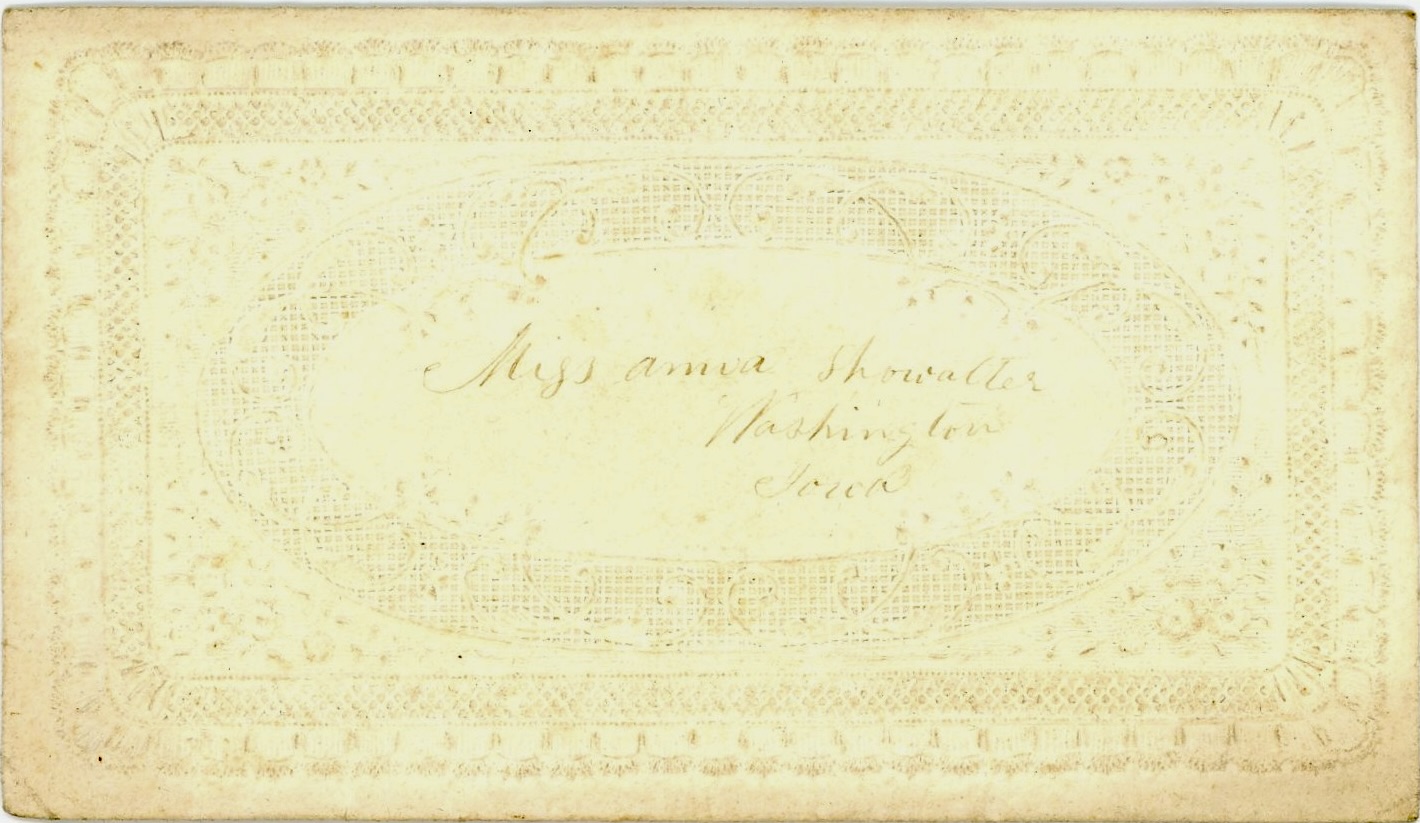 Miss anna Showalter
Washington
Iowa